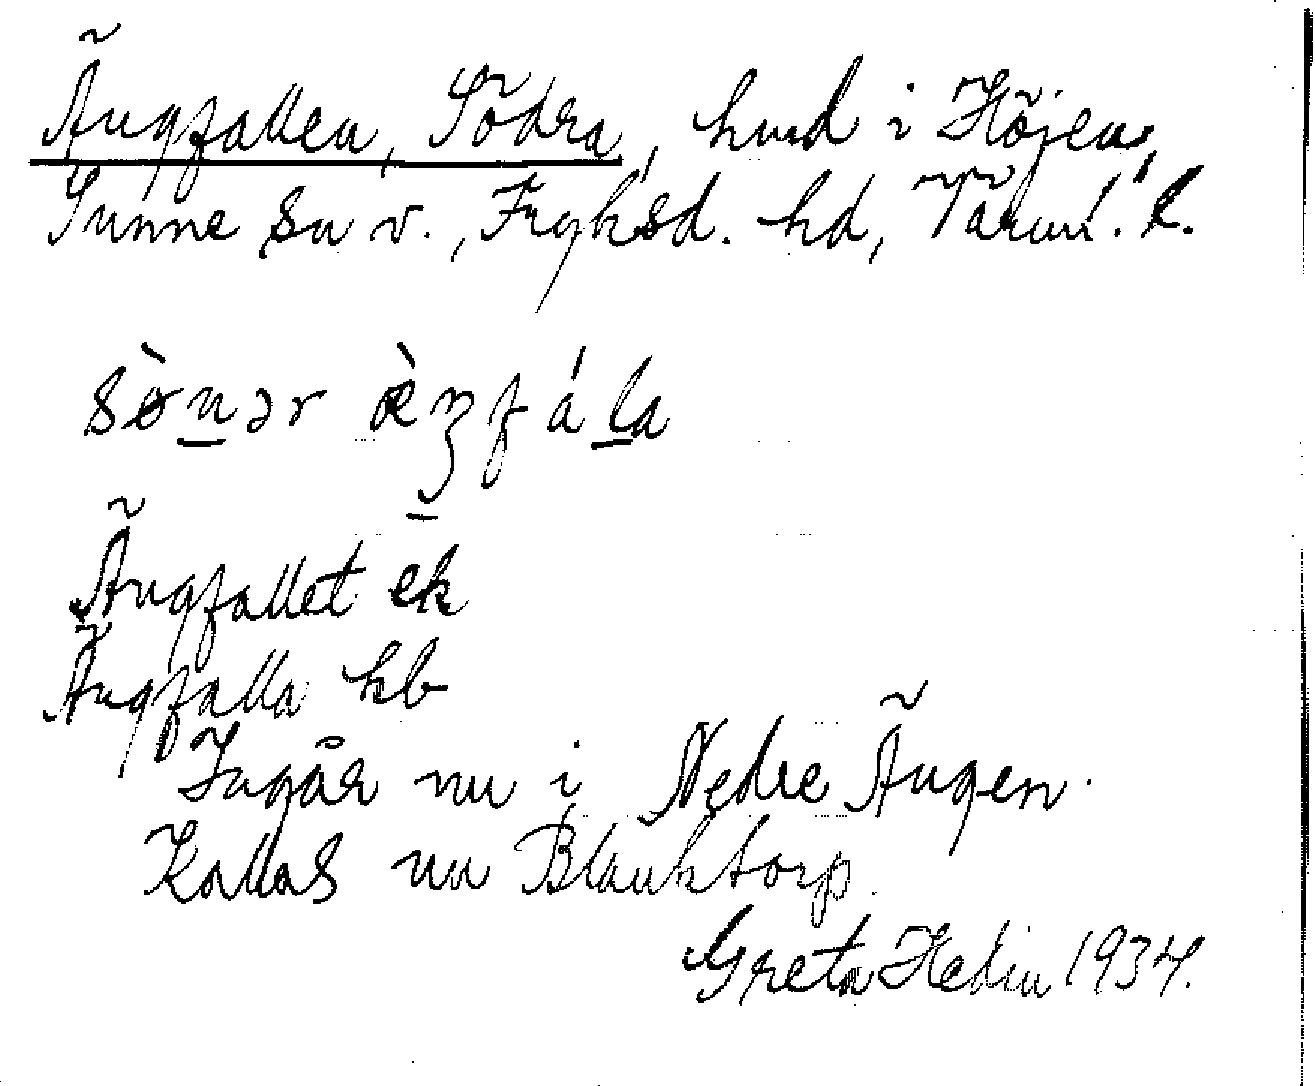 Ängfallen, Södra, hmd i Höjen,
Sunne sn v., Fryksd. hd, Värml. l.
sò̱nər æ̀ŋfála
Ängfallet ek
Ängfalla kb
Ingår nu i Nedre Ängen.
Kallas nu Blanktorp.
Greta Hedin 1934.